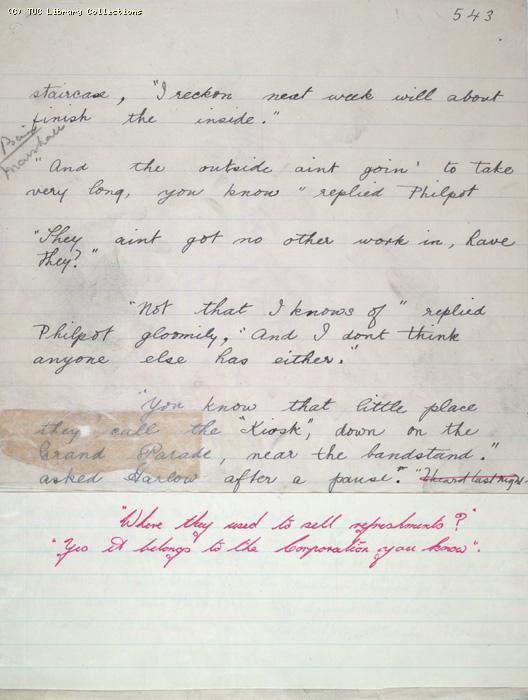 (C) TUC Library Collections
543
staircase, "I reckon next week will about
finish the inside."
"And the outside aint goin' to take
very long, you know" replied Philpot
"They aint got no other work in, have
they?"
"Not that I knows of" replied
Philpot gloomily, "And I dont think
anyone else has either."
"You know that little place
they call the "Kiosk", down on the
Grand Parade, near the bandstand."
asked Harlow after a pause." "I heard last night
"Where they used to sell refreshments?"
"Yes it belongs to the Corporation you know".